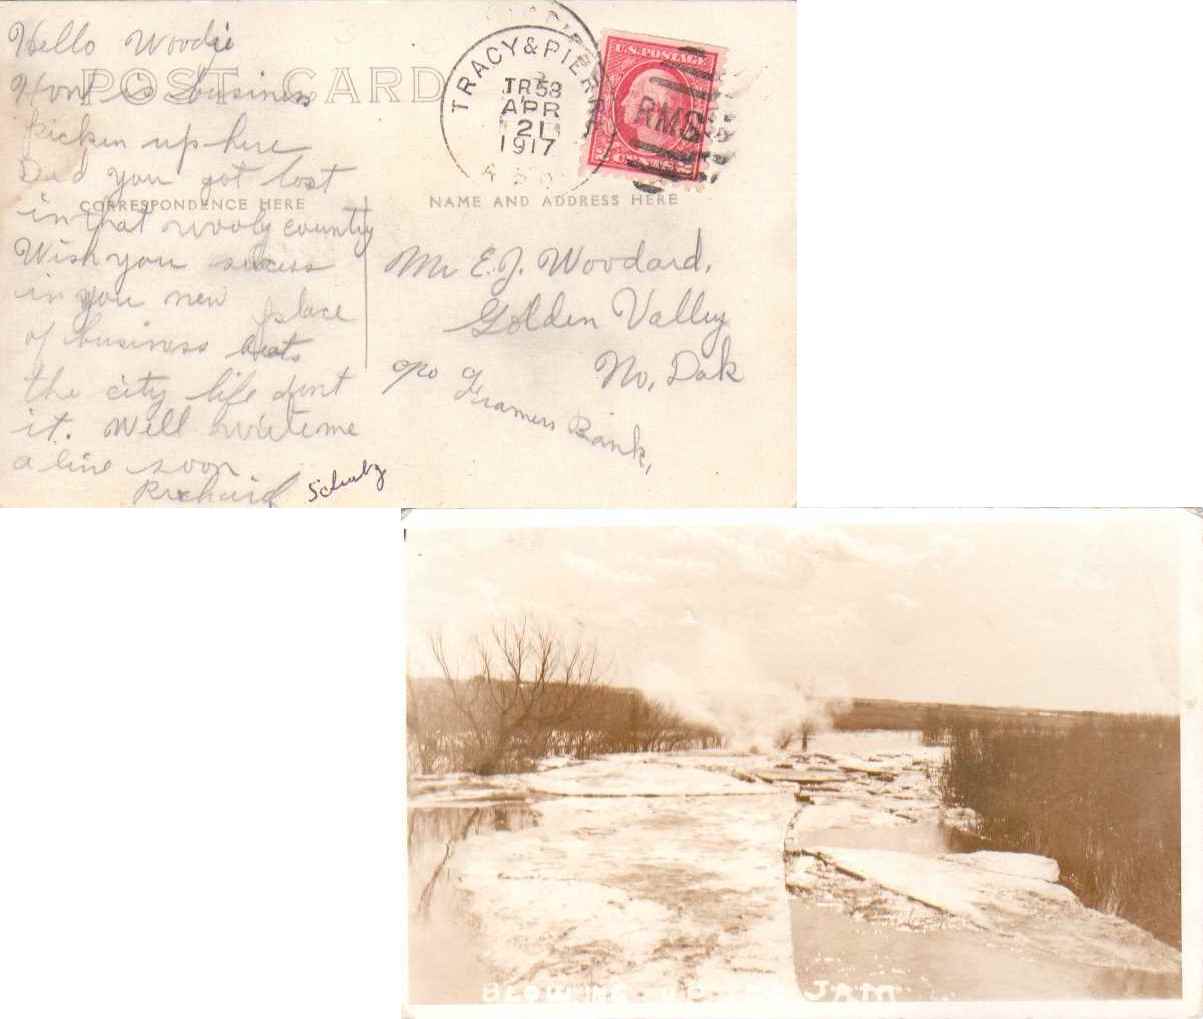 Hello Woodie
POST CARD
How is business
pickin up here
Did you get lost
CORRESPONDENCE HERE
in that wooly country
Wish you sucess
in you new place
of business beats
the city life dont
it. Well write me
a line soon
Richard Schultz
TRACY & PIERRE
TR 58
APR
21
1917
R.P.O.
U.S. POSTAGE
2 CENTS 2
RMS
NAME AND ADDRESS HERE
Mr E.J. Woodard,
Golden Valley
No, Dak
c/o Framers Bank,
BLOWING UP JAM